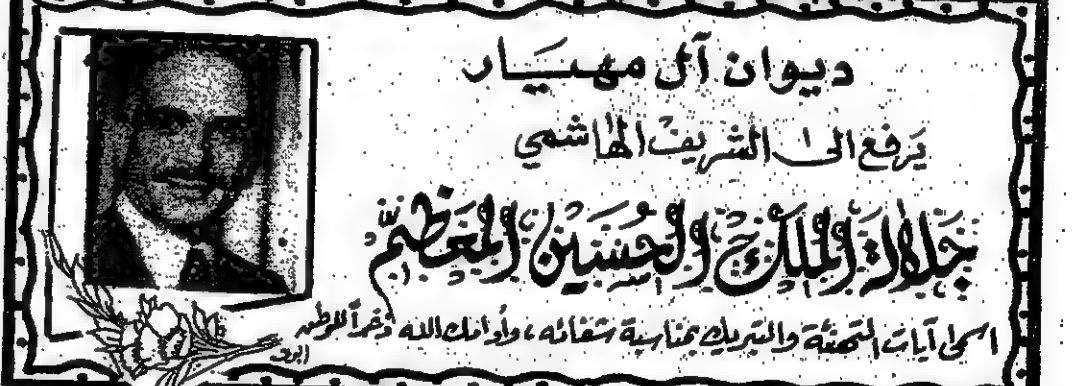 ديوان آل مهيار
يرفع الى الشريف الهاشمي
جلالة الملك الحسين المعظم
اسمى آيات التهنئة والتبريك بمناسبة شفائه، وأدامك الله ذخراً للوطن